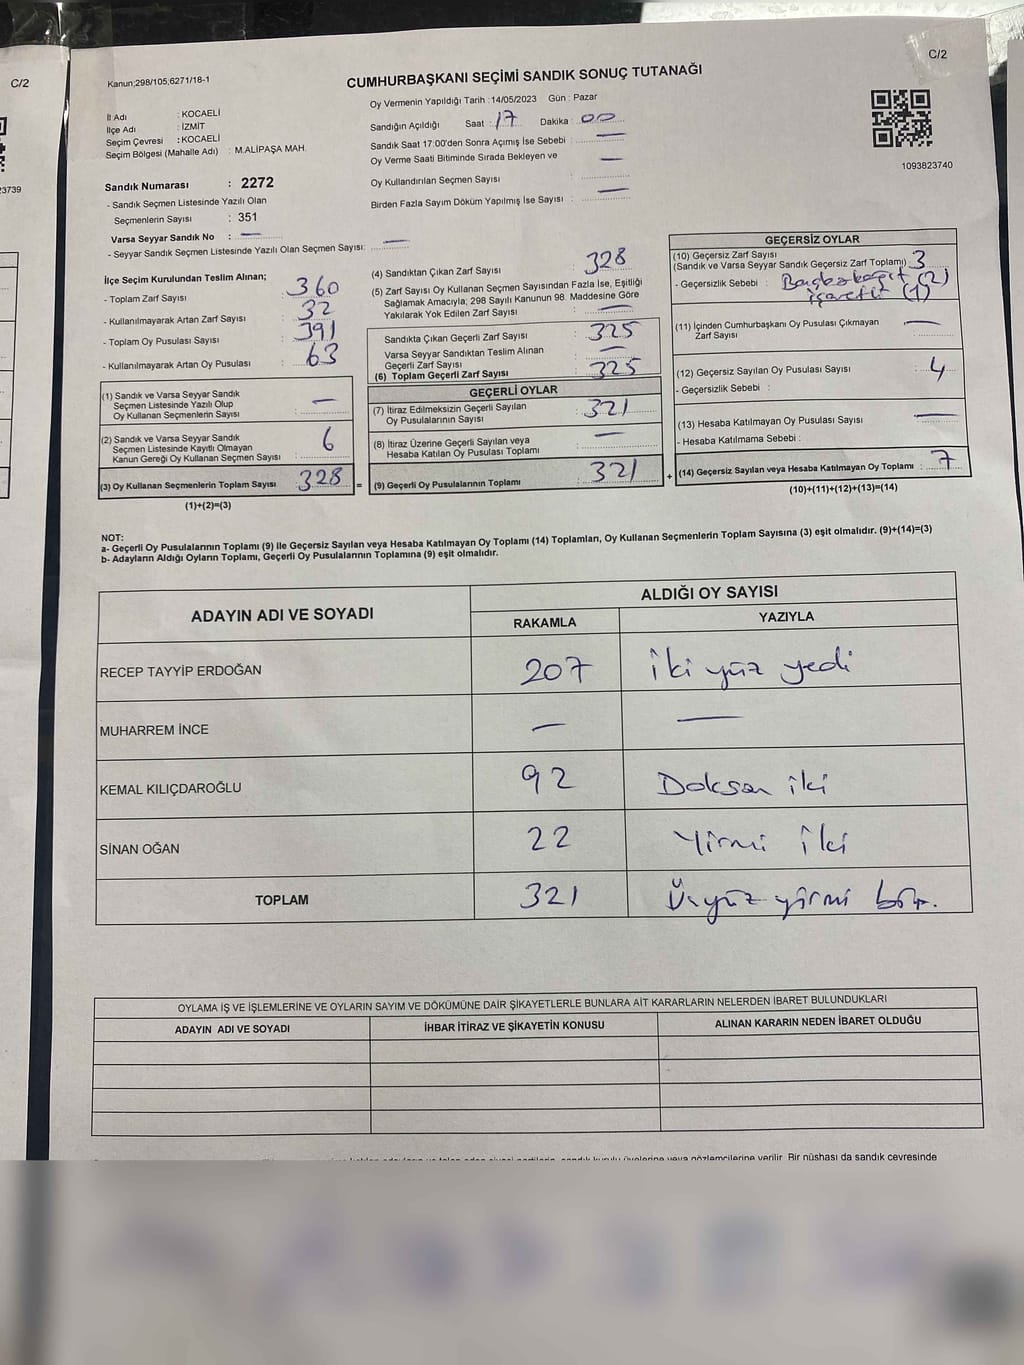 C/2
3739
C/2
Kanun;298/105;6271/18-1
CUMHURBAŞKANI SEÇİMİ SANDIK SONUÇ TUTANAĞI
1093823740
İl Adı : KOCAELİ
İlçe Adı : İZMİT
Seçim Çevresi : KOCAELİ
Seçim Bölgesi (Mahalle Adı) : M.ALİPAŞA MAH.
Sandık Numarası : 2272
- Sandık Seçmen Listesinde Yazılı Olan
Seçmenlerin Sayısı : 351
Varsa Seyyar Sandık No : —
- Seyyar Sandık Seçmen Listesinde Yazılı Olan Seçmen Sayısı: —
Oy Vermenin Yapıldığı Tarih : 14/05/2023 Gün : Pazar
Sandığın Açıldığı Saat : 17 Dakika : 00
Sandık Saat 17:00'den Sonra Açımış İse Sebebi : —
Oy Verme Saati Bitiminde Sırada Bekleyen ve —
Oy Kullandırılan Seçmen Sayısı :
Birden Fazla Sayım Döküm Yapılmış İse Sayısı : —
İlçe Seçim Kurulundan Teslim Alınan;
- Toplam Zarf Sayısı : 360
- Kullanılmayarak Artan Zarf Sayısı : 32
- Toplam Oy Pusulası Sayısı : 391
- Kullanılmayarak Artan Oy Pusulası : 63
(1) Sandık ve Varsa Seyyar Sandık
Seçmen Listesinde Yazılı Olup
Oy Kullanan Seçmenlerin Sayısı : —
(2) Sandık ve Varsa Seyyar Sandık
Seçmen Listesinde Kayıtlı Olmayan
Kanun Gereği Oy Kullanan Seçmen Sayısı : 6
(3) Oy Kullanan Seçmenlerin Toplam Sayısı : 328 =
(1)+(2)=(3)
(4) Sandıktan Çıkan Zarf Sayısı : 328
(5) Zarf Sayısı Oy Kullanan Seçmen Sayısından Fazla İse, Eşitliği
Sağlamak Amacıyla; 298 Sayılı Kanunun 98. Maddesine Göre
Yakılarak Yok Edilen Zarf Sayısı : —
Sandıkta Çıkan Geçerli Zarf Sayısı : 325
Varsa Seyyar Sandıktan Teslim Alınan
Geçerli Zarf Sayısı : —
(6) Toplam Geçerli Zarf Sayısı : 325
GEÇERLİ OYLAR
(7) İtiraz Edilmeksizin Geçerli Sayılan
Oy Pusulalarının Sayısı : 321
(8) İtiraz Üzerine Geçerli Sayılan veya
Hesaba Katılan Oy Pusulası Toplamı : —
(9) Geçerli Oy Pusulalarının Toplamı : 321 +
GEÇERSİZ OYLAR
(10) Geçersiz Zarf Sayısı
(Sandık ve Varsa Seyyar Sandık Geçersiz Zarf Toplamı) : 3
- Geçersizlik Sebebi : (2)
işaretli (1)
(11) İçinden Cumhurbaşkanı Oy Pusulası Çıkmayan
Zarf Sayısı : —
(12) Geçersiz Sayılan Oy Pusulası Sayısı : 4
- Geçersizlik Sebebi :
(13) Hesaba Katılmayan Oy Pusulası Sayısı : —
- Hesaba Katılmama Sebebi :
(14) Geçersiz Sayılan veya Hesaba Katılmayan Oy Toplamı : 7
(10)+(11)+(12)+(13)=(14)
NOT:
a- Geçerli Oy Pusulalarının Toplamı (9) ile Geçersiz Sayılan veya Hesaba Katılmayan Oy Toplamı (14) Toplamları, Oy Kullanan Seçmenlerin Toplam Sayısına (3) eşit olmalıdır. (9)+(14)=(3)
b- Adayların Aldığı Oyların Toplamı, Geçerli Oy Pusulalarının Toplamına (9) eşit olmalıdır.
ADAYIN ADI VE SOYADI
ALDIĞI OY SAYISI
RAKAMLA YAZIYLA
RECEP TAYYİP ERDOĞAN 207 iki yüz yedi
MUHARREM İNCE — —
KEMAL KILIÇDAROĞLU 92 Doksan iki
SİNAN OĞAN 22 Yirmi iki
TOPLAM 321 Üçyüz yirmi bir.
OYLAMA İŞ VE İŞLEMLERİNE VE OYLARIN SAYIM VE DÖKÜMÜNE DAİR ŞİKAYETLERLE BUNLARA AİT KARARLARIN NELERDEN İBARET BULUNDUKLARI
ADAYIN ADI VE SOYADI İHBAR İTİRAZ VE ŞİKAYETİN KONUSU ALINAN KARARIN NEDEN İBARET OLDUĞU
sandık kurulu üyelerine veya gözlemcilerine verilir. Bir nüshası da sandık çevresinde